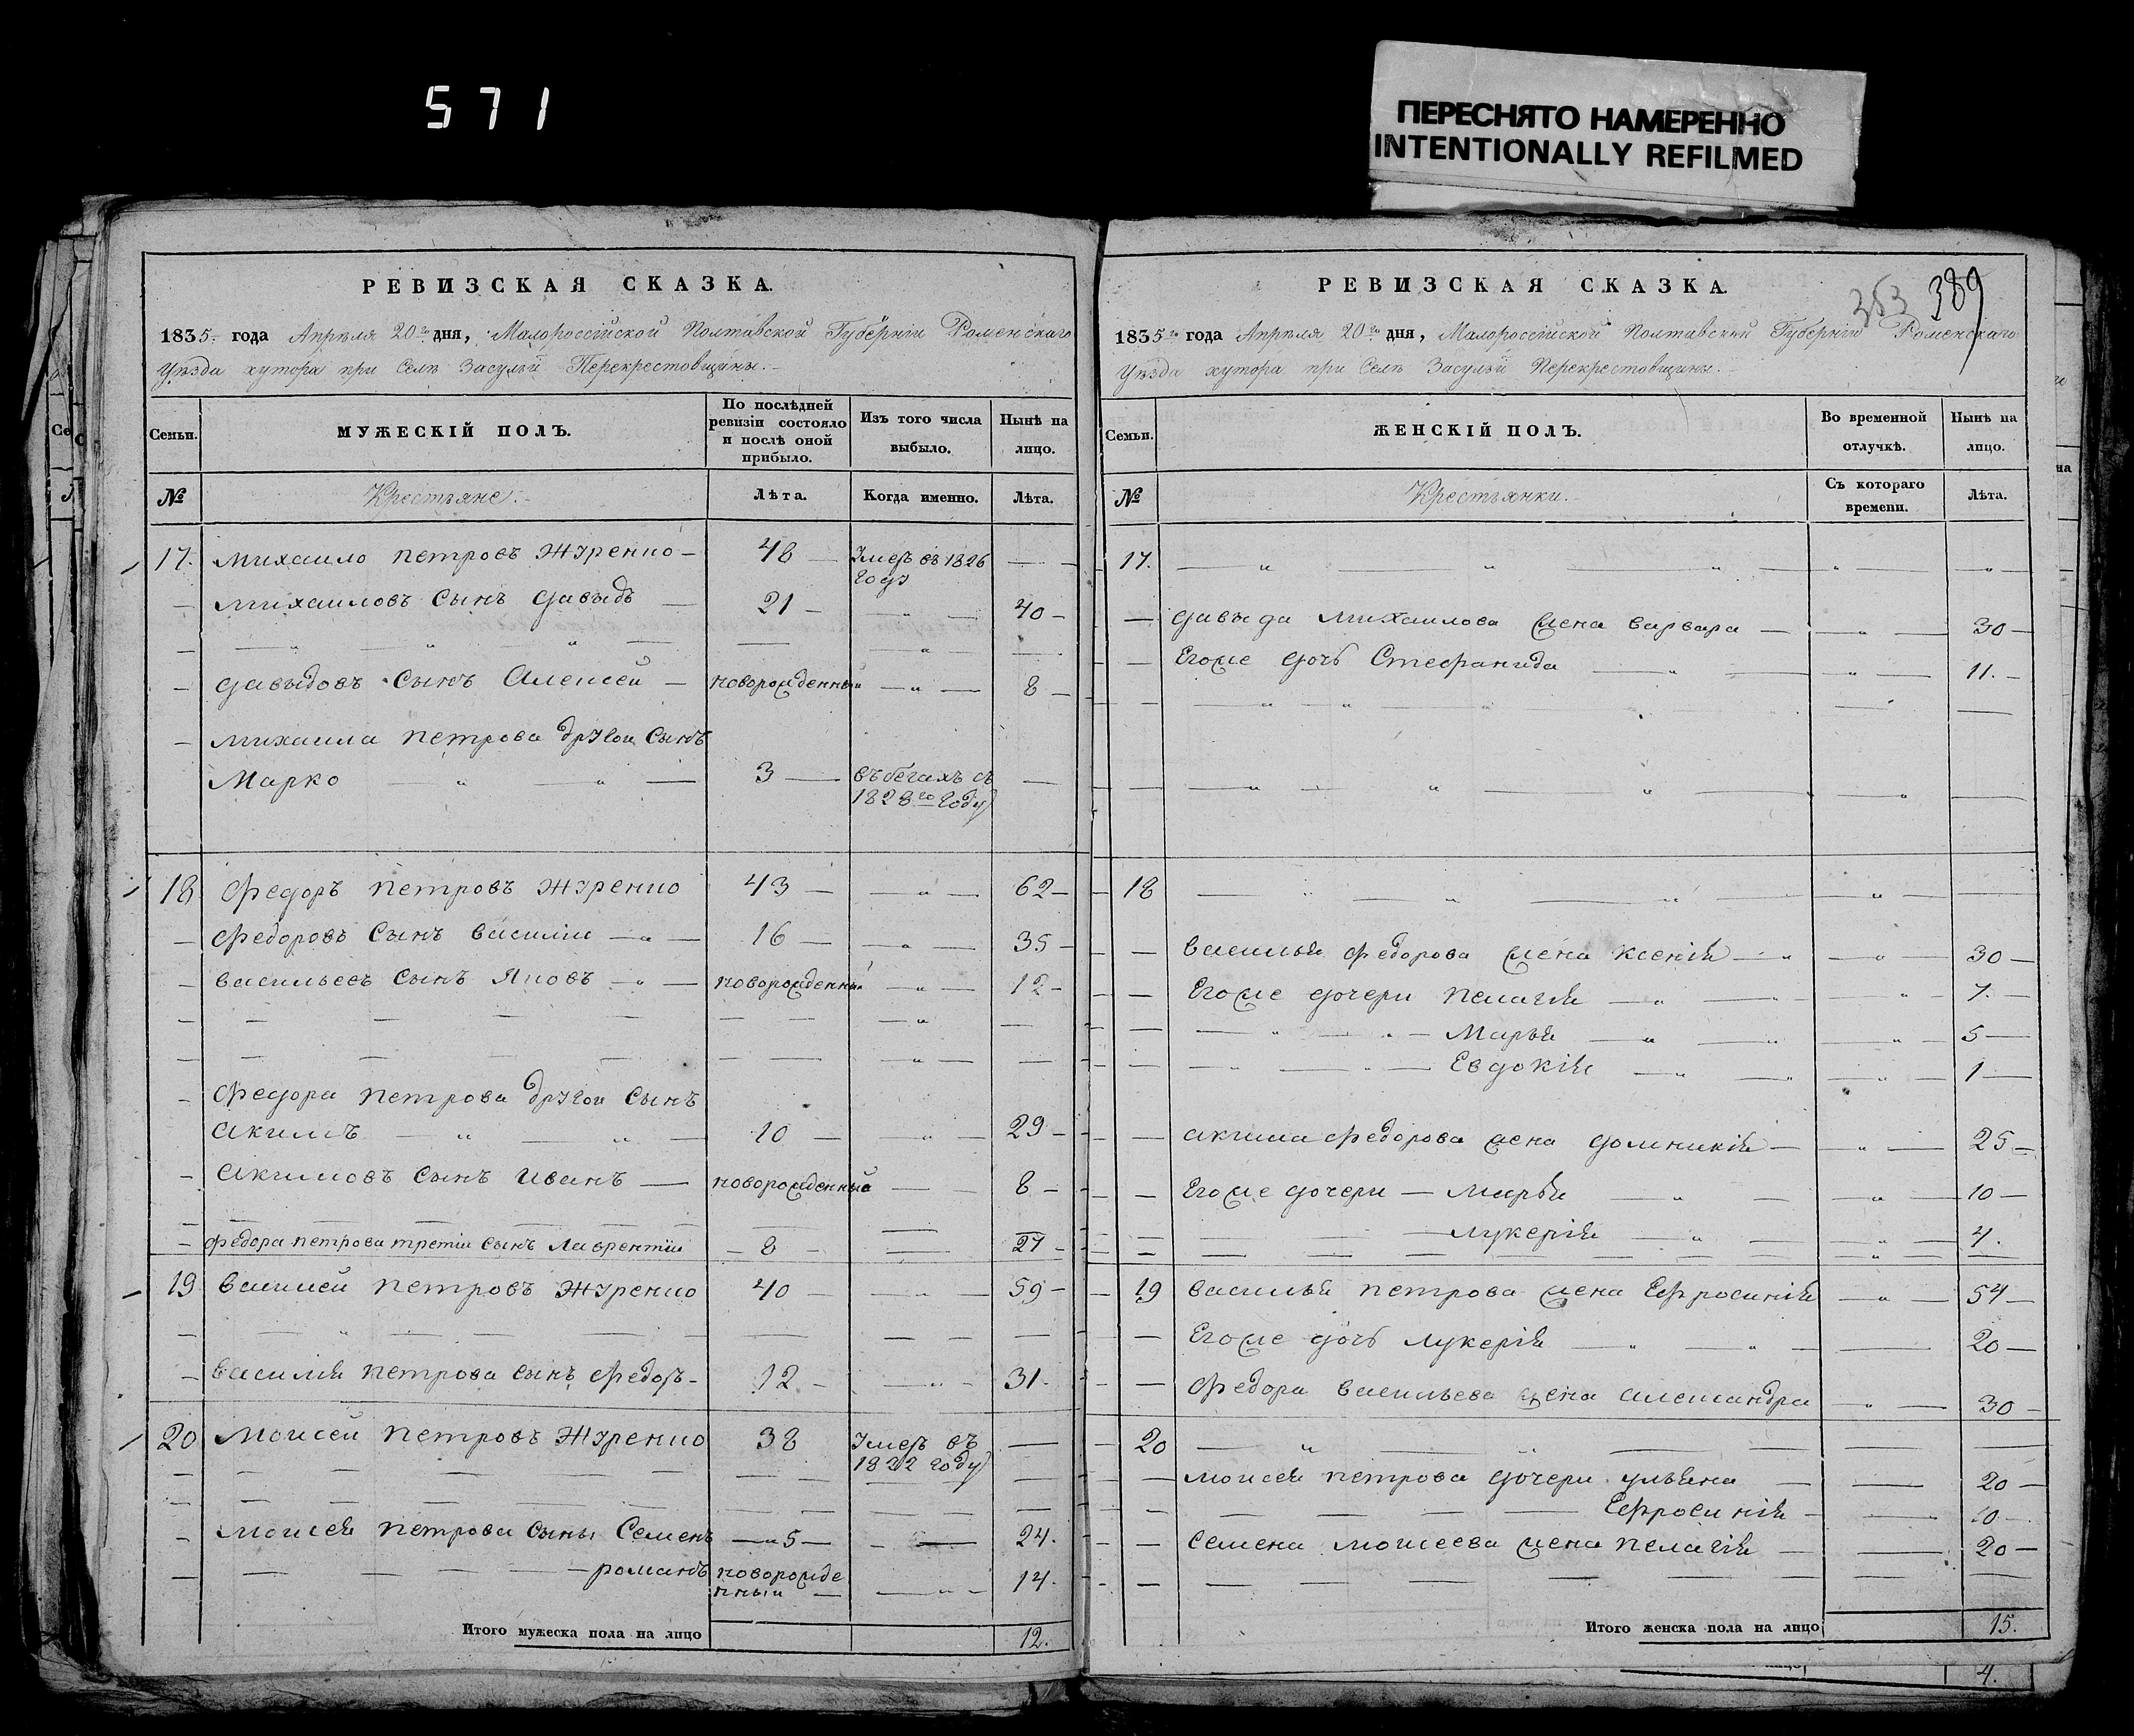 571
ПЕРЕСНЯТО НАМЕРЕННО
INTENTIONALLY REFILMED
РЕВИЗСКАЯ СКАЗКА.
1835. года Апрѣля 20го дня, Малороссійской Полтавской Губерніи Роменскаго
Уѣзда хутора при Селѣ Засульи Перекрестовщины.
Семьи.
МУЖЕСКІЙ ПОЛЪ.
По послѣдней ревизіи состояло и послѣ оной прибыло.
Изъ того числа выбыло.
Нынѣ на лицо.
№ Крестьяне. Лѣта. Когда именно. Лѣта.
17. Михаило Петровъ Журенко 48 Умеръ въ 1826
году
Михаиловъ Сынъ Давыдъ 21 40
Давыдовъ Сынъ Алексей новорожденный 8
Михаила Петрова другой Сынъ
Марко 3 въ бегахъ съ
1828го году
18 Федоръ Петровъ Журенко 43 62
Федоровъ Сынъ Василии 16 35
Васильевъ Сынъ Яковъ новорожденный 12
Федора Петрова другои Сынъ
Акимъ 10 29
Акимовъ Сынъ Иванъ новорожденный 8
Федора Петрова третіи Сынъ Лаврентіи 8 27
19 Василей Петровъ Журенко 40 59
Василія Петрова Сынъ Федоръ 12 31.
20 Моисей Петровъ Журенко 38 Умеръ въ
1822 году
Моисея Петрова Сыны Семенъ 5 24.
Романъ новорожде
нныи 14.
Итого мужеска пола на лицо 12.
РЕВИЗСКАЯ СКАЗКА.
353 389
1835го года Апрѣля 20го дня, Малороссійской Полтавской Губерніи Роменскаго
Уѣзда хутора при Селѣ Засульи Перекрестовщины.
Семьи.
ЖЕНСКІЙ ПОЛЪ.
Во временной отлучкѣ.
Нынѣ на лицо.
№ Крестьянки. Съ котораго времени. Лѣта.
17.
Давыда Михаилова жена Варвара 30
Егоже дочь Стефанида 11.
18
Василья Федорова жена Ксенія 30
Егоже дочери Пелагія 7.
Марья 5
Евдокія 1
Акима Федорова жена Домникія 25
Егоже дочери Марья 10
Лукерія 4.
19 Василья Петрова жена Ефросинія 54
Егоже дочь Лукерія 20
Федора Васильева жена Александра 30
20
Моисея Петрова дочери Ульяна 20
Ефросинія 10
Семена Моисеева жена Пелагія 20
Итого женска пола на лицо 15.
4.